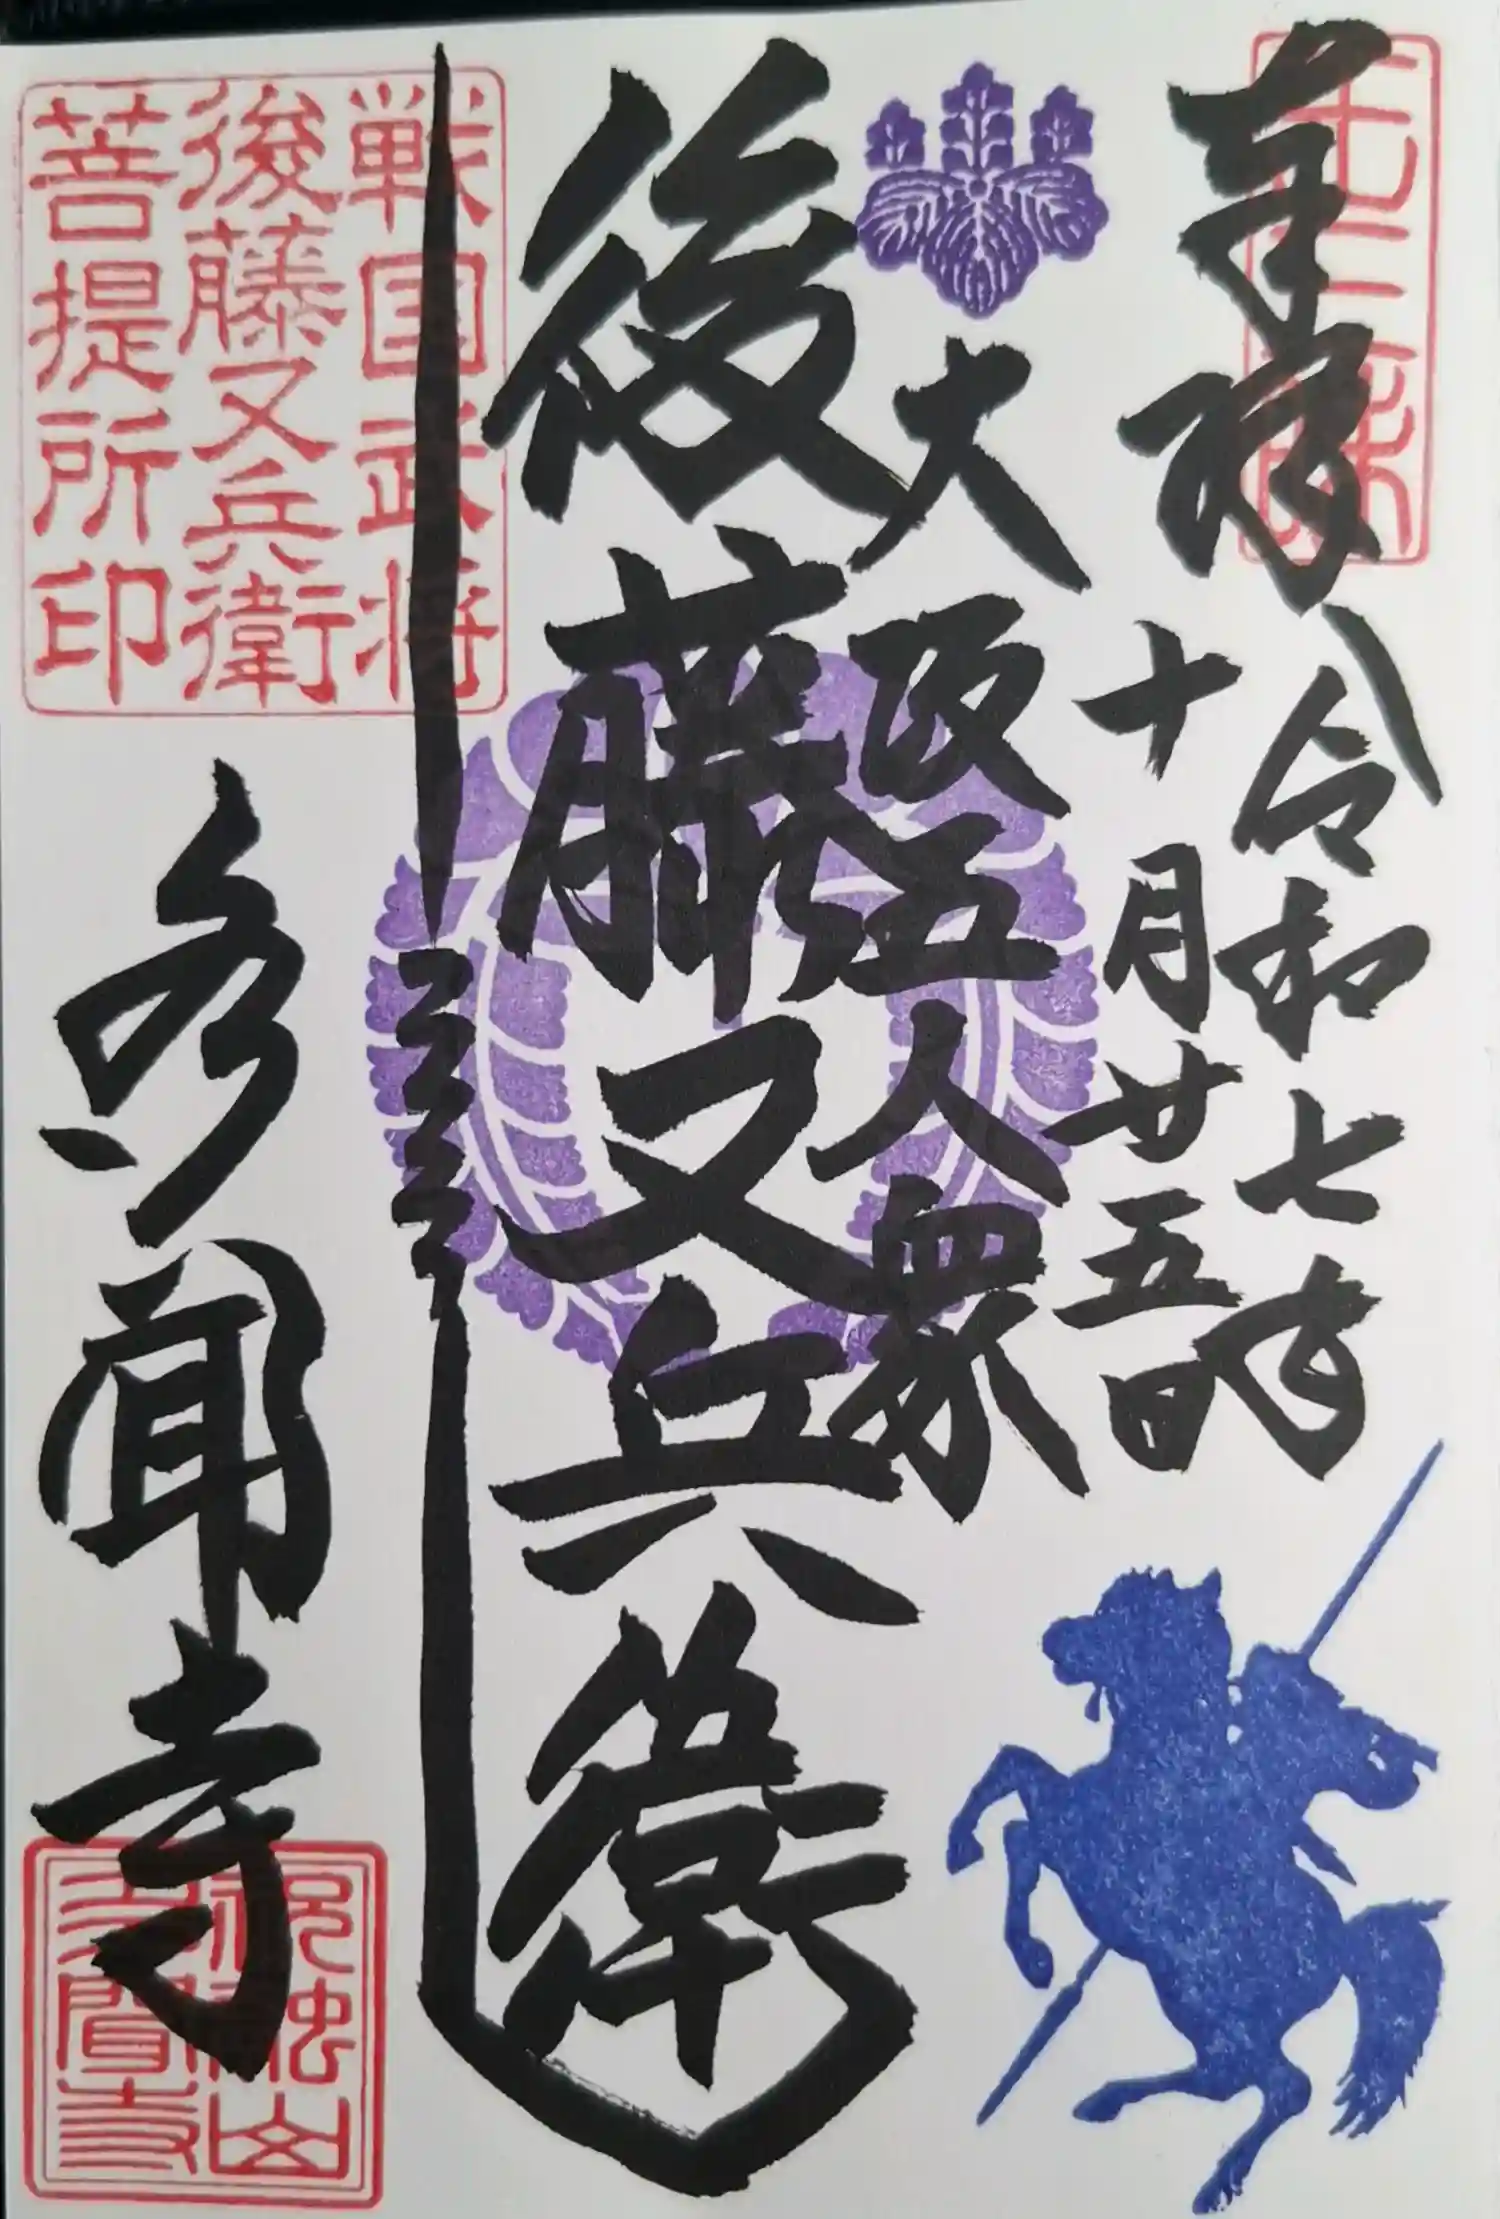 奉拝
令和七年
十月廿五日
大阪五人衆
後藤又兵衛
戦国武将
後藤又兵衛
菩提所印
多聞寺
祝融山
多聞寺